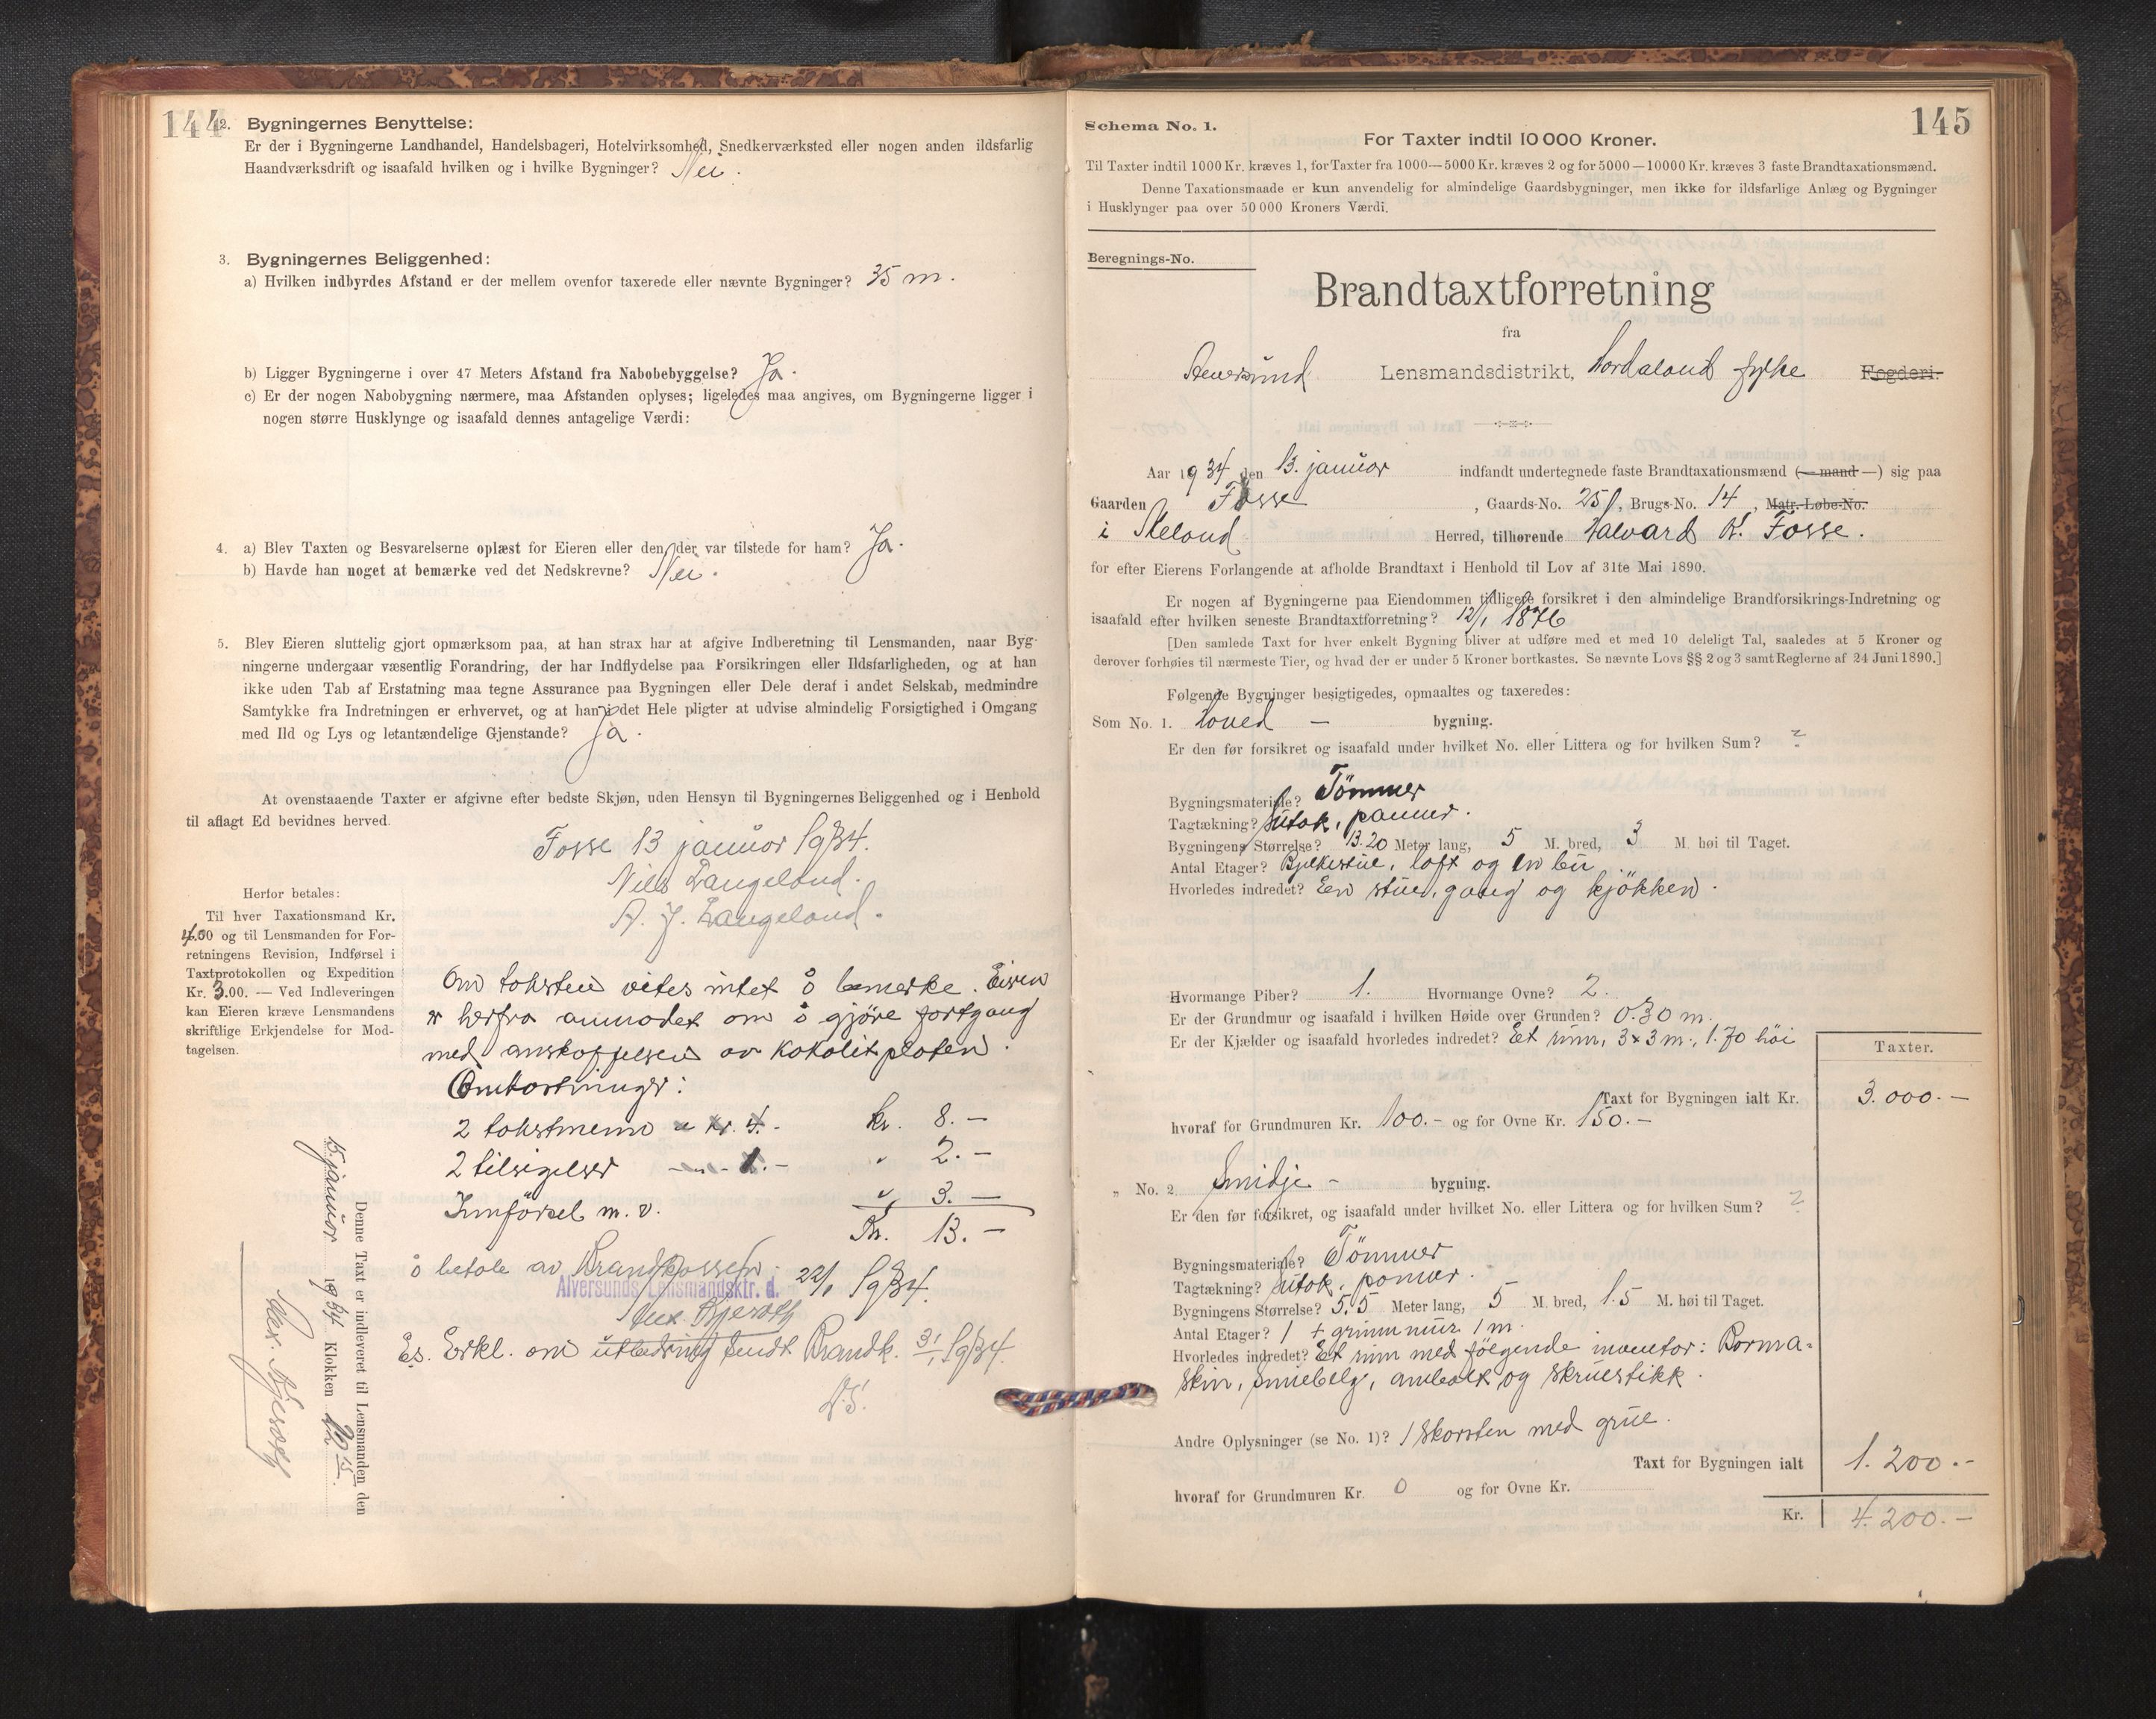 144
2. Bygningernes Benyttelse:
Er der i Bygningerne Landhandel, Handelsbageri, Hotelvirksomhed, Snedkerværksted eller nogen anden ildsfarlig
Haandværksdrift og isaafald hvilken og i hvilke Bygninger? Nei.
3. Bygningernes Beliggenhed:
a) Hvilken indbyrdes Afstand er der mellem ovenfor taxerede eller nævnte Bygninger? 35 m.
b) Ligger Bygningerne i over 47 Meters Afstand fra Nabobebyggelse? Ja.
c) Er der nogen Nabobygning nærmere, maa Afstanden oplyses; ligeledes maa angives, om Bygningerne ligger i
nogen større Husklynge og isaafald dennes antagelige Værdi:
4. a) Blev Taxten og Besvarelserne oplæst for Eieren eller den, der var tilstede for ham? Ja.
b) Havde han noget at bemærke ved det Nedskrevne? Nei.
5. Blev Eieren sluttelig gjort opmærksom paa, at han strax har at afgive Indberetning til Lensmanden, naar Byg-
ningerne undergaar væsentlig Forandring, der har Indflydelse paa Forsikringen eller Ildsfarligheden, og at han
ikke uden Tab af Erstatning maa tegne Assurance paa Bygningen eller Dele deraf i andet Selskab, medmindre
Samtykke fra Indretningen er erhvervet, og at han i det Hele pligter at udvise almindelig Forsigtighed i Omgang
med Ild og Lys og letantændelige Gjenstande? Ja.
At ovenstaaende Taxter er afgivne efter bedste Skjøn, uden Hensyn til Bygningernes Beliggenhed og i Henhold
til aflagt Ed bevidnes herved.
Fosse 13 januar 1934.
Nils Langeland.
A. J. Langeland.
Herfor betales:
Til hver Taxationsmand Kr.
4.00 og til Lensmanden for For-
retningens Revision, Indførsel i
Taxtprotokollen og Expedition
Kr. 3.00. — Ved Indleveringen
kan Eieren kræve Lensmandens
skriftlige Erkjendelse for Mod-
tagelsen.
Om taksten vites intet å bemerke. Eieren
er herfra anmodet om å gjöre fortgang
med anskaffelsen av kokolitplaten.
Omkostninger:
2 takstmenn a kr. 4.- kr. 8.-
2 tilsigelser -"- 1.- " 2.-
Innförsel m. v. " 3.-
Kr. 13.-
å betale av Brandkassen. 22/1 1934.
Alversunds Lensmandsktr. d.
Es. Erkl. om utbedring sendt Brandk. 31/1 1934.
Denne Taxt er indleveret til Lensmanden, den
15 januar 1934 Klokken 22 15.
145
Schema No. 1.
For Taxter indtil 10 000 Kroner.
Til Taxter indtil 1000 Kr. kræves 1, for Taxter fra 1000—5000 Kr. kræves 2 og for 5000—10000 Kr. kræves 3 faste Brandtaxationsmænd.
Denne Taxationsmaade er kun anvendelig for almindelige Gaardsbygninger, men ikke for ildsfarlige Anlæg og Bygninger
i Husklynger paa over 50 000 Kroners Værdi.
Beregnings-No.
Brandtaxtforretning
fra
Alversund Lensmandsdistrikt, Hordaland fylke Fogderi.
Aar 1934 den 13. januar indfandt undertegnede faste Brandtaxationsmænd (— mand —) sig paa
Gaarden Fosse, Gaards-No. 251, Brugs-No. 14, Matr.-Løbe-No.
i Meland Herred, tilhørende Halvard K. Fosse.
for efter Eierens Forlangende at afholde Brandtaxt i Henhold til Lov af 31te Mai 1890.
Er nogen af Bygningerne paa Eiendommen tidligere forsikret i den almindelige Brandforsikrings-Indretning og
isaafald efter hvilken seneste Brandtaxtforretning? 12/1 1876
[Den samlede Taxt for hver enkelt Bygning bliver at udføre med et med 10 deleligt Tal, saaledes at 5 Kroner og
derover forhøies til nærmeste Tier, og hvad der er under 5 Kroner bortkastes. Se nævnte Lovs §§ 2 og 3 samt Reglerne af 24 Juni 1890.]
Følgende Bygninger besigtigedes, opmaaltes og taxeredes:
Som No. 1. Hoved — bygning.
Er den før forsikret og isaafald under hvilket No. eller Littera og for hvilken Sum? ?
Bygningsmateriale? Tömmer
Tagtækning? Sutak, panner.
Bygningens Størrelse? 13.20 Meter lang, 5 M. bred, 3 M. høi til Taget.
Antal Etager? Bjelkestue, loft og en bu.
Hvorledes indredet? Een stue, gang og kjökken.
Hvormange Piber? 1. Hvormange Ovne? 2.
Er der Grundmur og isaafald i hvilken Høide over Grunden? 0.30 m.
Er der Kjælder og isaafald hvorledes indredet? Et rum, 3 x 3 m., 1.70 höi
Taxter.
Taxt for Bygningen ialt Kr. 3.000.-
hvoraf for Grundmuren Kr. 100.- og for Ovne Kr. 150.-
„ No. 2 Smidje - bygning.
Er den før forsikret, og isaafald under hvilket No. eller Littera og for hvilken Sum? ?
Bygningsmateriale? Tömmer
Tagtækning? Sutak, panner.
Bygningens Størrelse? 5.5 Meter lang, 5 M. bred, 1.5 M. høi til Taget.
Antal Etager? 1 + grunnmur 1 m.
Hvorledes indredet? Et rum med fölgende inventar: Borma-
skin, smiebelg, ambolt og skruestikk.
Andre Oplysninger (se No. 1)? 1 skorsten med grue.
Taxt for Bygningen ialt 1.200.-
hvoraf for Grundmuren Kr. 0 og for Ovne Kr.
Kr. 4.200.-